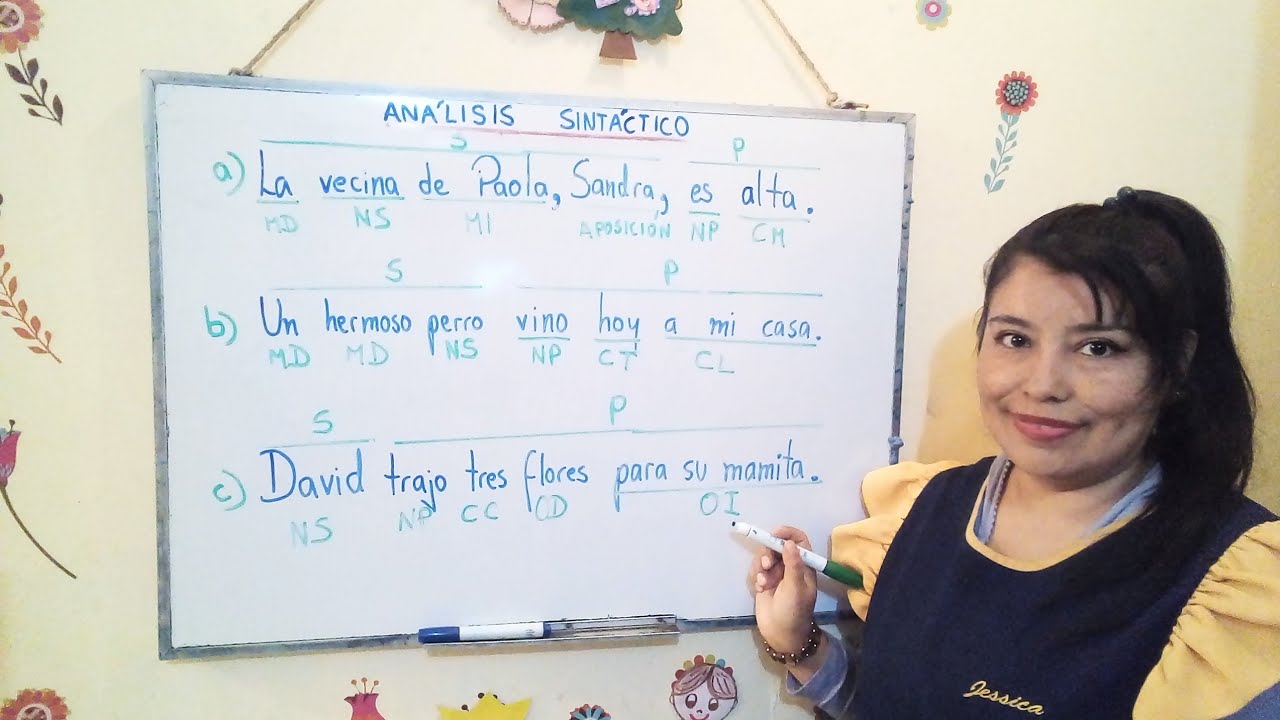 ANÁLISIS SINTÁCTICO
S P
a) La vecina de Paola, Sandra, es alta.
MD NS MI APOSICIÓN NP CM
S P
b) Un hermoso perro vino hoy a mi casa.
MD MD NS NP CT CL
S P
c) David trajo tres flores para su mamita.
NS NP CC OD OI
Jessica